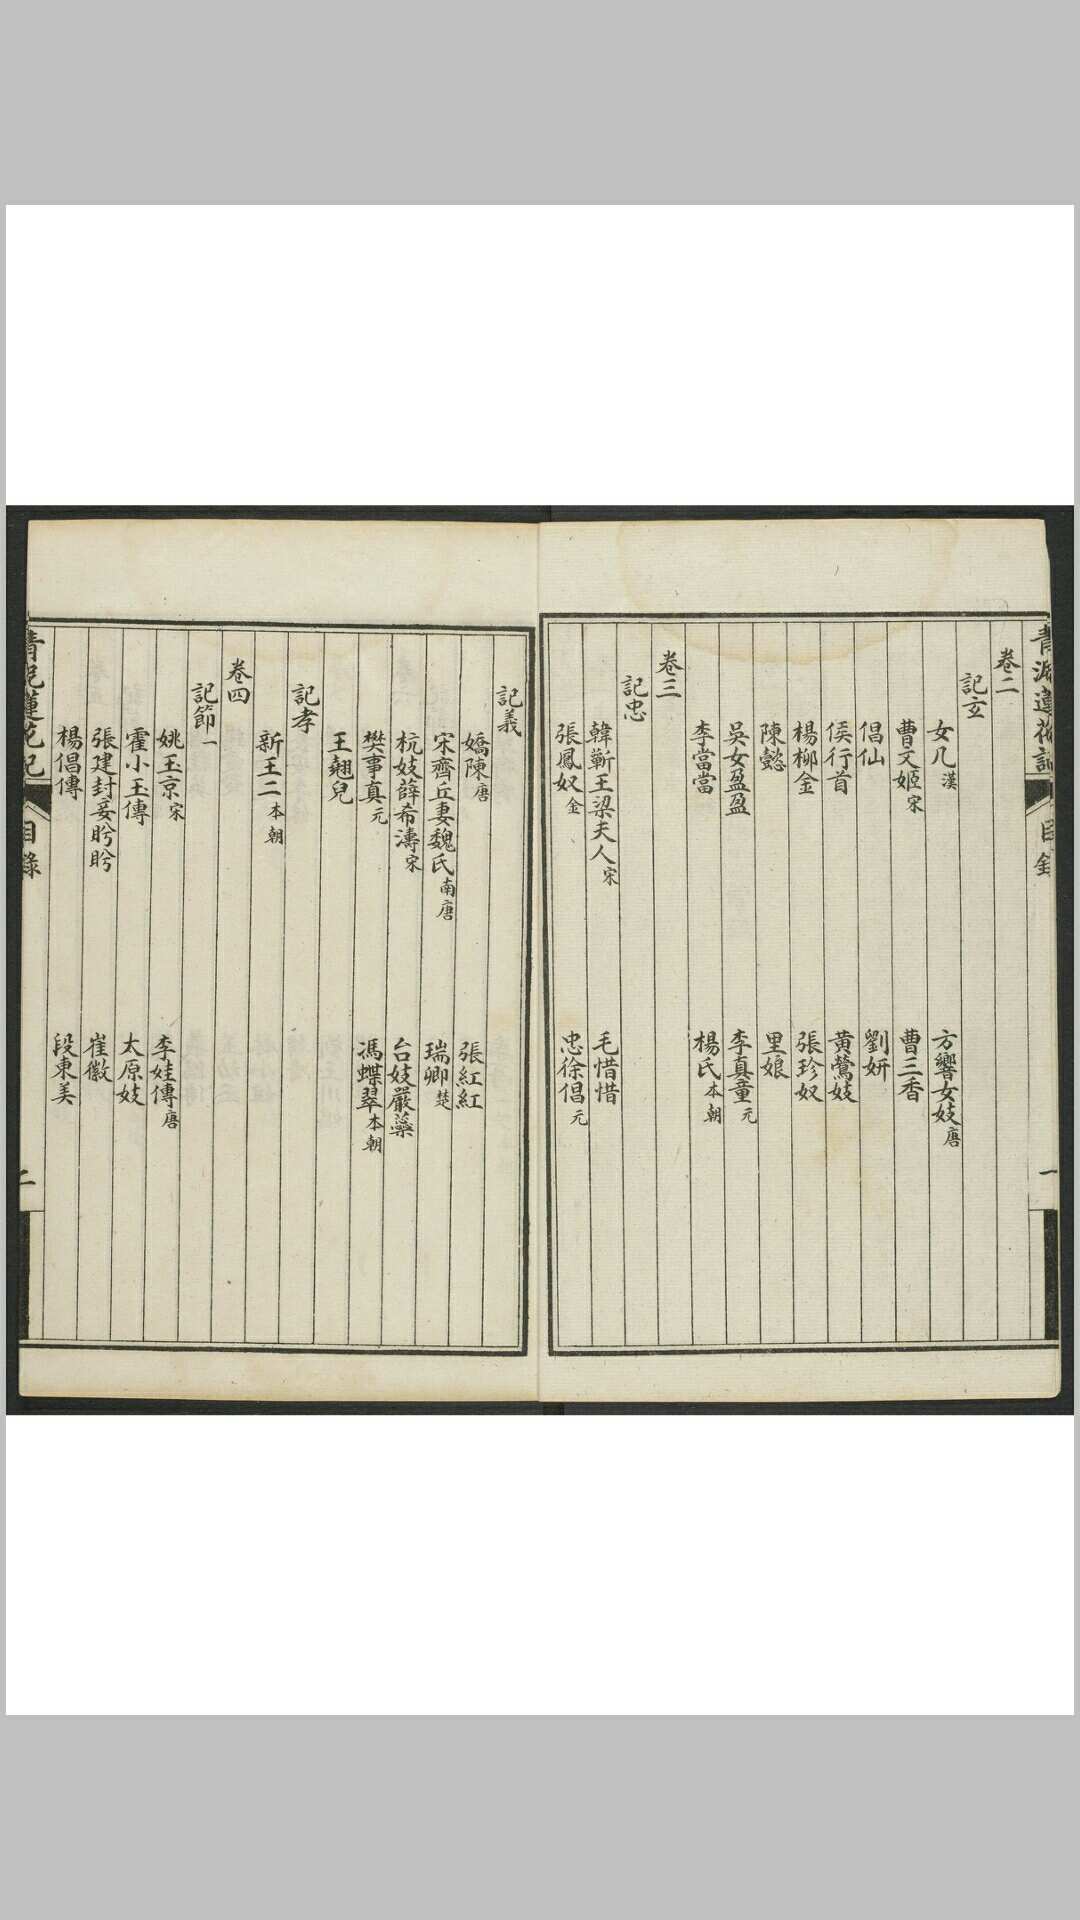 卷二
記玄
女几漢　方響女妓唐
曹文姬宋　曹三香
倡仙　劉妍
侯行首　黃鶯妓
楊柳金　張珍奴
陳懿　里娘
吳女盈盈　李真童元
李當當　楊氏本朝
卷三
記忠
韓蘄王梁夫人宋　毛惜惜
張鳳奴金　忠徐倡元
記義
嬌陳唐　張紅紅
宋齊丘妻魏氏南唐　瑞卿楚
杭妓薛希濤宋　台妓嚴蘂
樊事真元　馮蝶翠本朝
王翹兒
記孝
新王二本朝
卷四
記節一
姚玉京宋　李娃傳唐
霍小玉傳　太原妓
張建封妾盼盼　崔徽
楊倡傳　段東美
青泥蓮花記　目錄　二